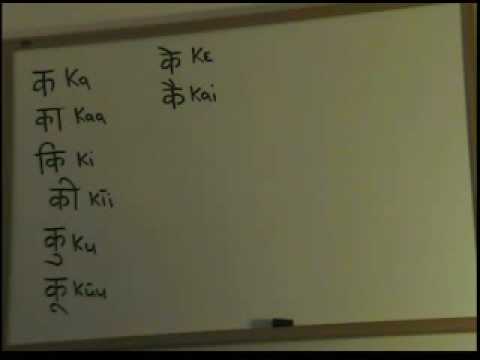 क Ka
का Kaa
कि Ki
की Kīi
कु Ku
कू Kūu
के Kε
कै Kai